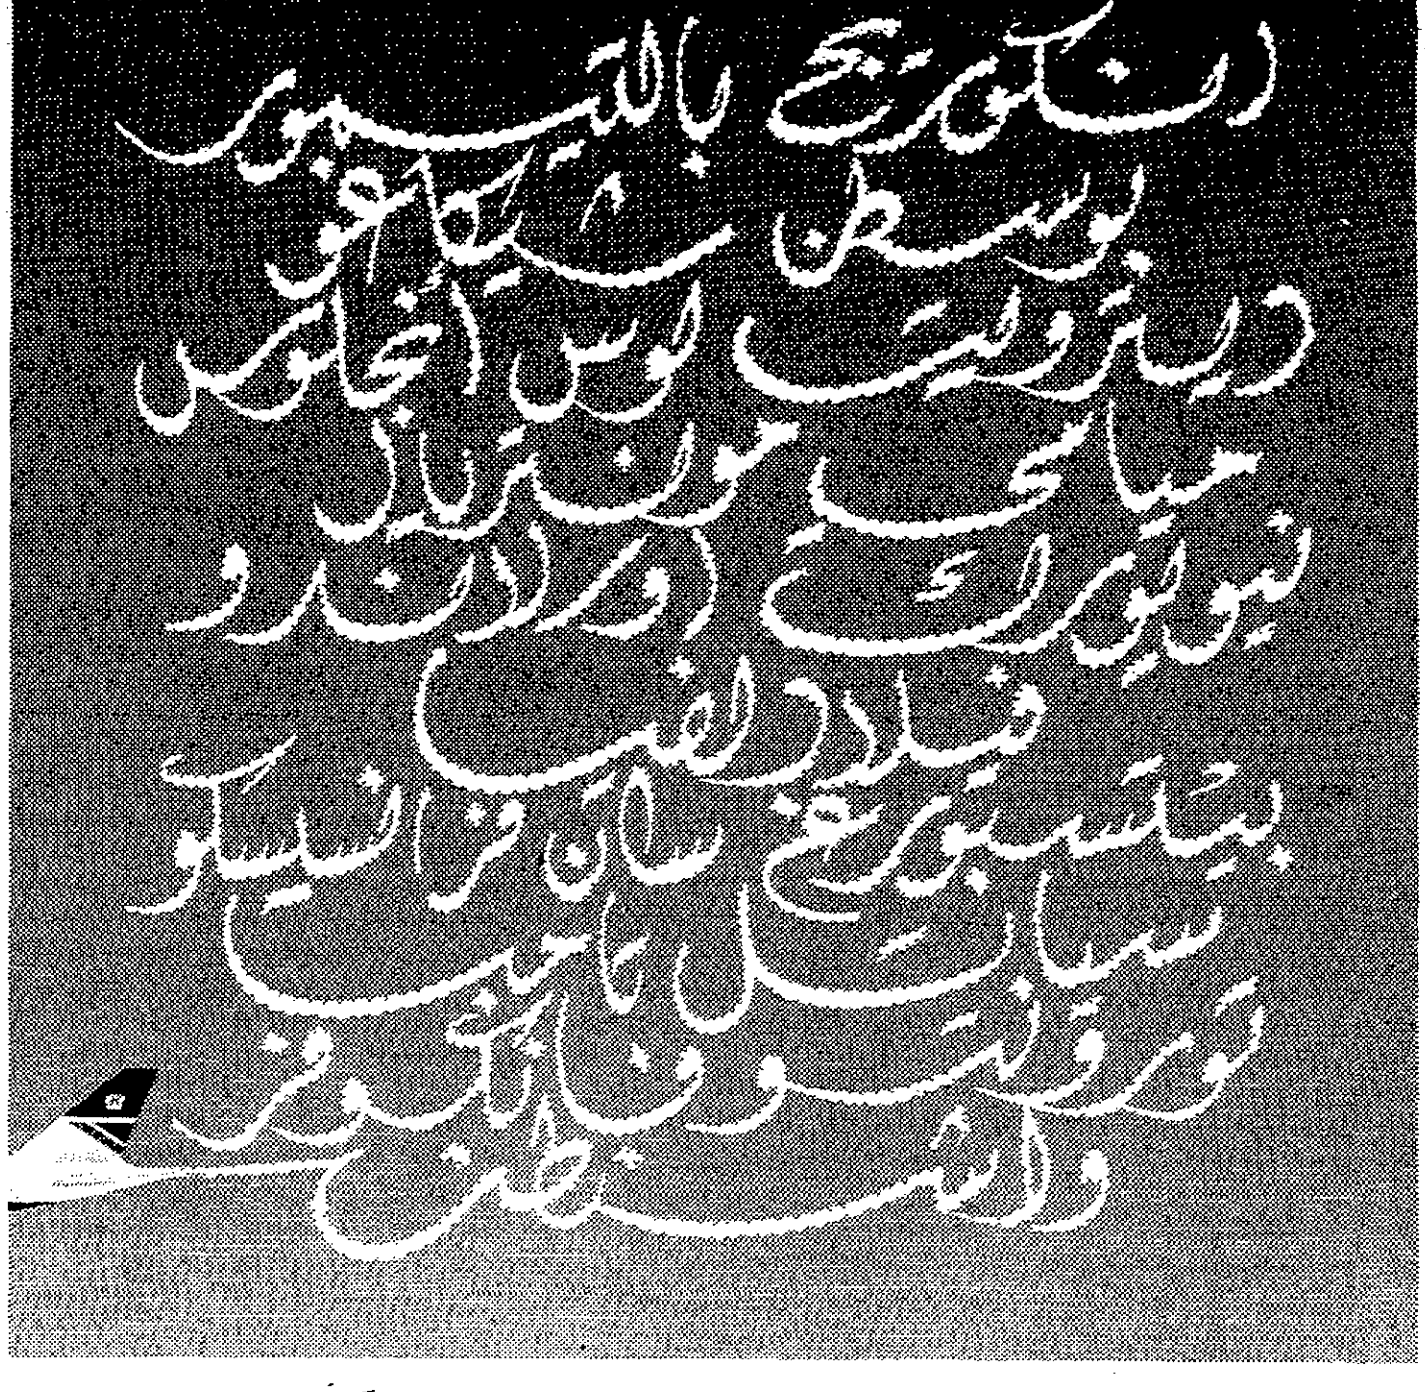 انكوريج بالتيمور
بوسطن شيكاغو
ديترويت لوس أنجلوس
ميامي مونتريال
نيويورك اورلاندو
فيلادلفيا
بيتسبورغ سان فرانسيسكو
سياتل تامبا
تورونتو فانكوفر
واشنطن